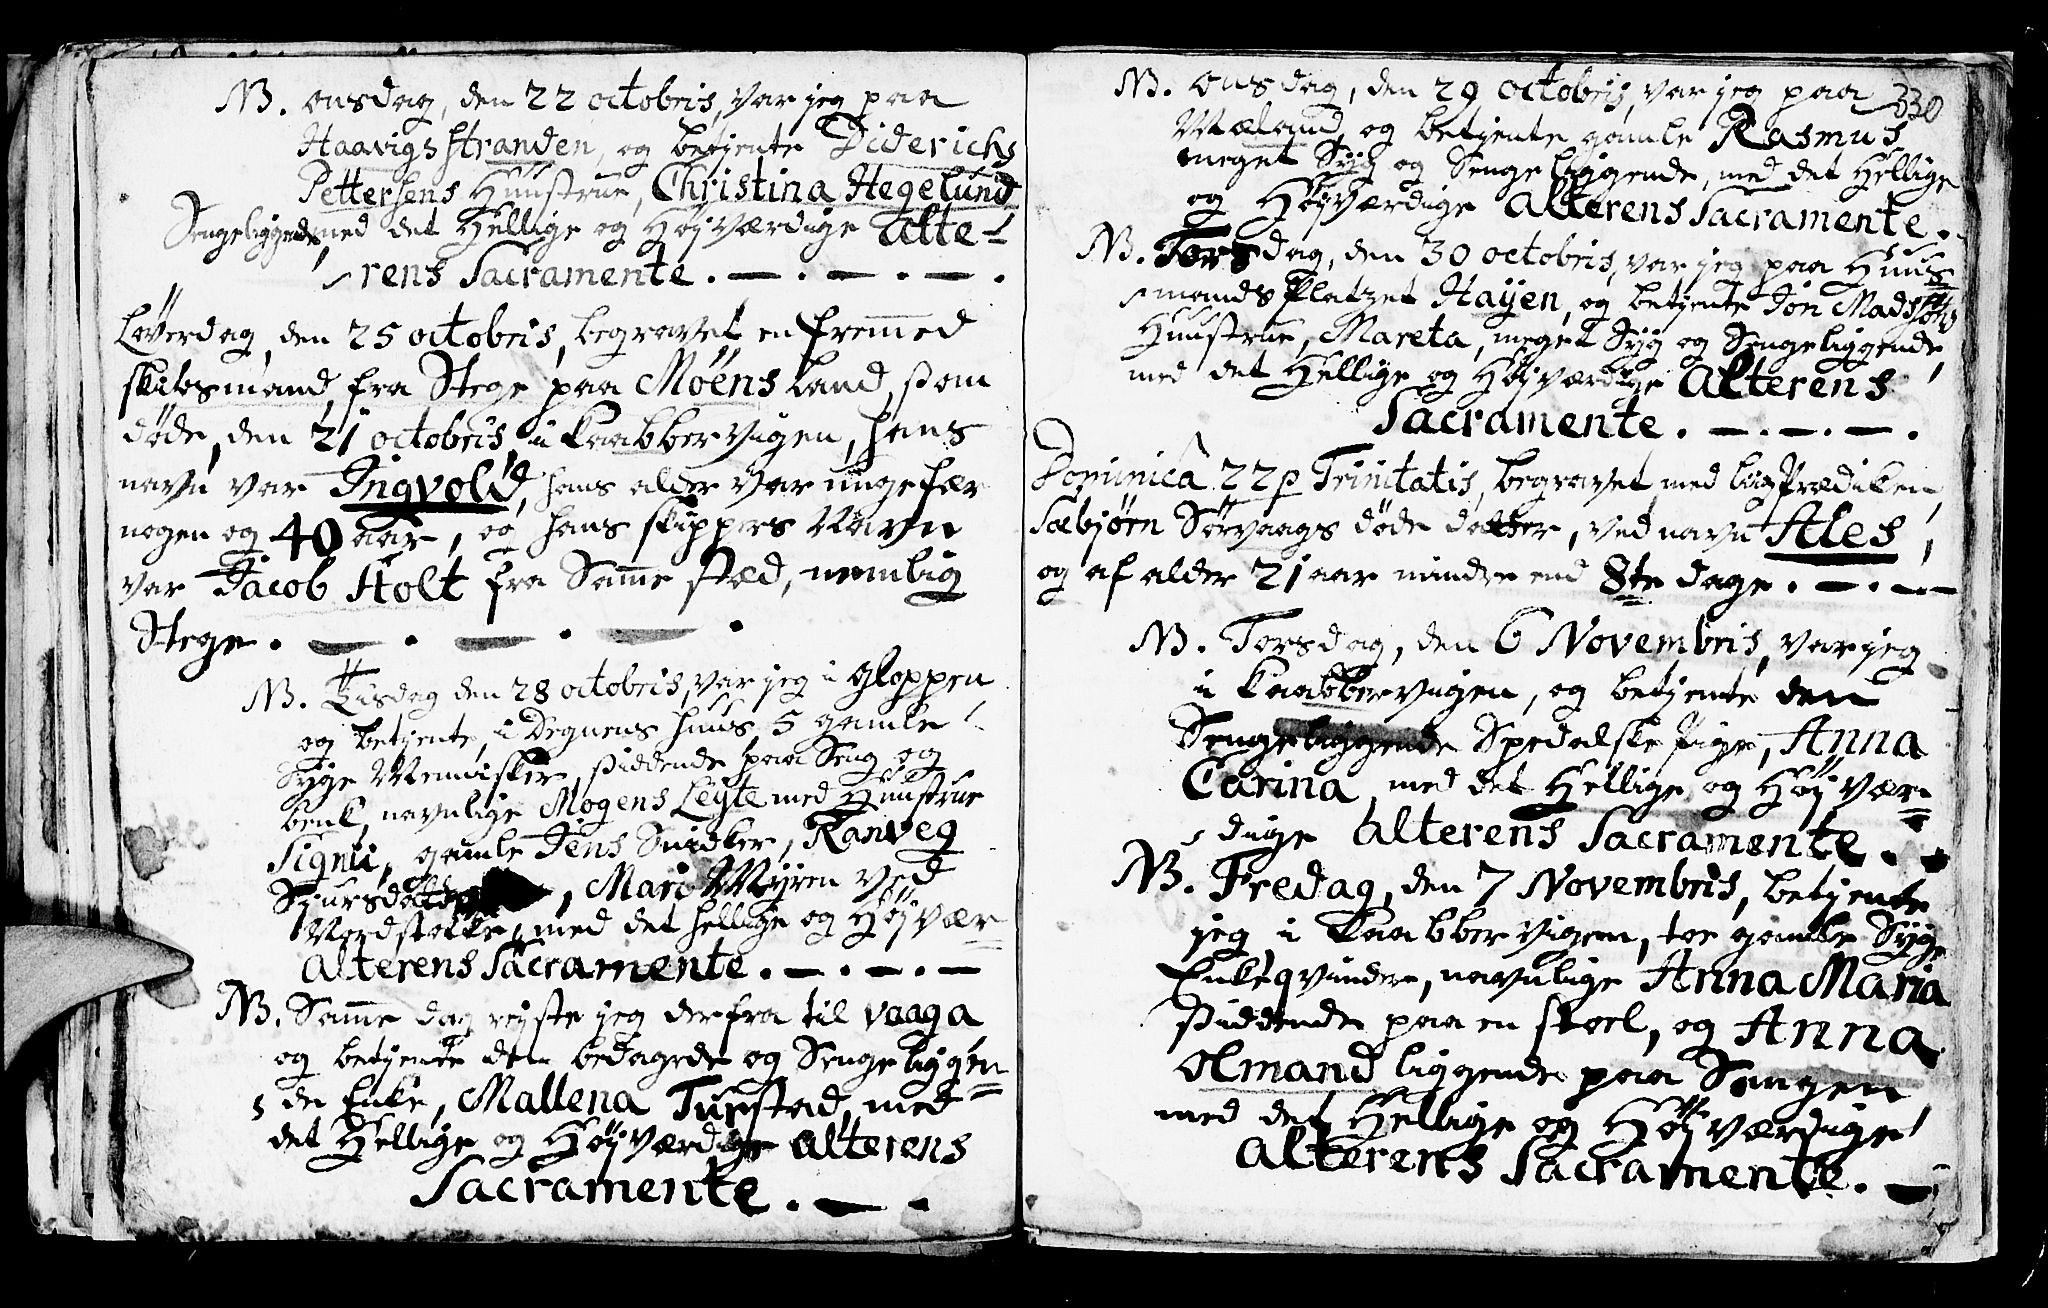 NB. onsdag, den 22 octobris, var jeg paa
Haavigsstranden, og betjente Diderichs
Pettersens Huustrue, Christina Hegelund
Sengeliggende, med det Hellige og Højværdige Alte-
rens Sacramente. — . — . — .
Løverdag, den 25 octobris, begravet en fremmed
skibsmand, fra Stege paa Möens Land, som
døde, den 21 octobris i Kaabbervigen, hans
navn var Jngvold, hans alder var ungefær
nogen og 40 aar, og hans skippers Navn
var Jacob Holt fra Samme stæd, nemlig
Stege. — . — . — .
NB. Tisdag den 28 octobris, var jeg i Gloppen
og betjente, i Degnens huus, 5 gamle
syge Mennisker, siddende paa Seng og
benk, navnlige Mogens Leyte med Huustrue
Signii, gamle Jens Snidker, Ranveg
Siursdatter, Mari Myren ved
Nordstokke, med det hellige og Højvær-
Alterens Sacramente. — . — . —
NB. Samme dag rejste jeg derfra til Vaaga
og betjente den bedagede og Sengeliggen-
de Enke, Mallena Turstad, med
det Hellige og Højværdige Alterens
Sacramente. — .
330
NB. onsdag, den 29 octobris, var jeg paa
Mæland, og betjente gamle Rasmus
meget Syg og Sengeliggende, med det Hellige
og Højværdige Alterens Sacramente.
NB. Torsdag, den 30 octobris, var jeg paa Huus-
mands Platzet Hayen, og betjente Jon Madssøns
Huustrue, Mareta, meget Syg og Sengeliggende,
med det Hellige og Højværdige Alterens
Sacramente. — . — . — .
Dominica 22 p Trinitatis, begravet med LigPrædiken,
Sæbjørn Sørvaags døde datter, ved navn Ales,
og af alder 21 aar mindre end 8te dage. — . — . —
NB. Torsdag, den 6 Novembris, var jeg
i Kaabbervigen, og betjente den
Sengeliggende Spedalske Pige, Anna
Carina, med det Hellige og Højvær-
dige Alterens Sacramente. .
NB. Fredag, den 7 Novembris, betjente
jeg i Kaabbervigen, toe gamle Syge
Enkeqvinder, navnlige Anna Maria
siddende paa en stoel, og Anna
Olmand liggende paa Sengen
med det Hellige og Højværdige
Alterens Sacramente. —